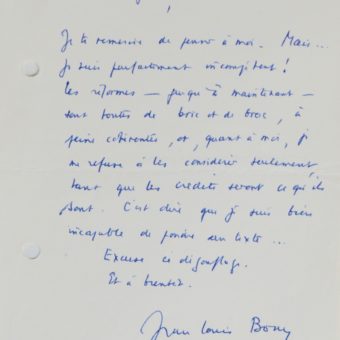 !
Je te remercie de penser à moi. Mais...
je suis parfaitement incompétent !
Les réformes — jusqu'à maintenant —
sont toutes de bric et de broc, à
peine cohérentes, et, quant à moi, je
me refuse à les considérer seulement,
tant que les crédits seront ce qu'ils
sont. C'est dire que je suis bien
incapable de pondre un texte ...
Excuse ce dégonflage.
Et à bientôt.
Jean Louis Bory